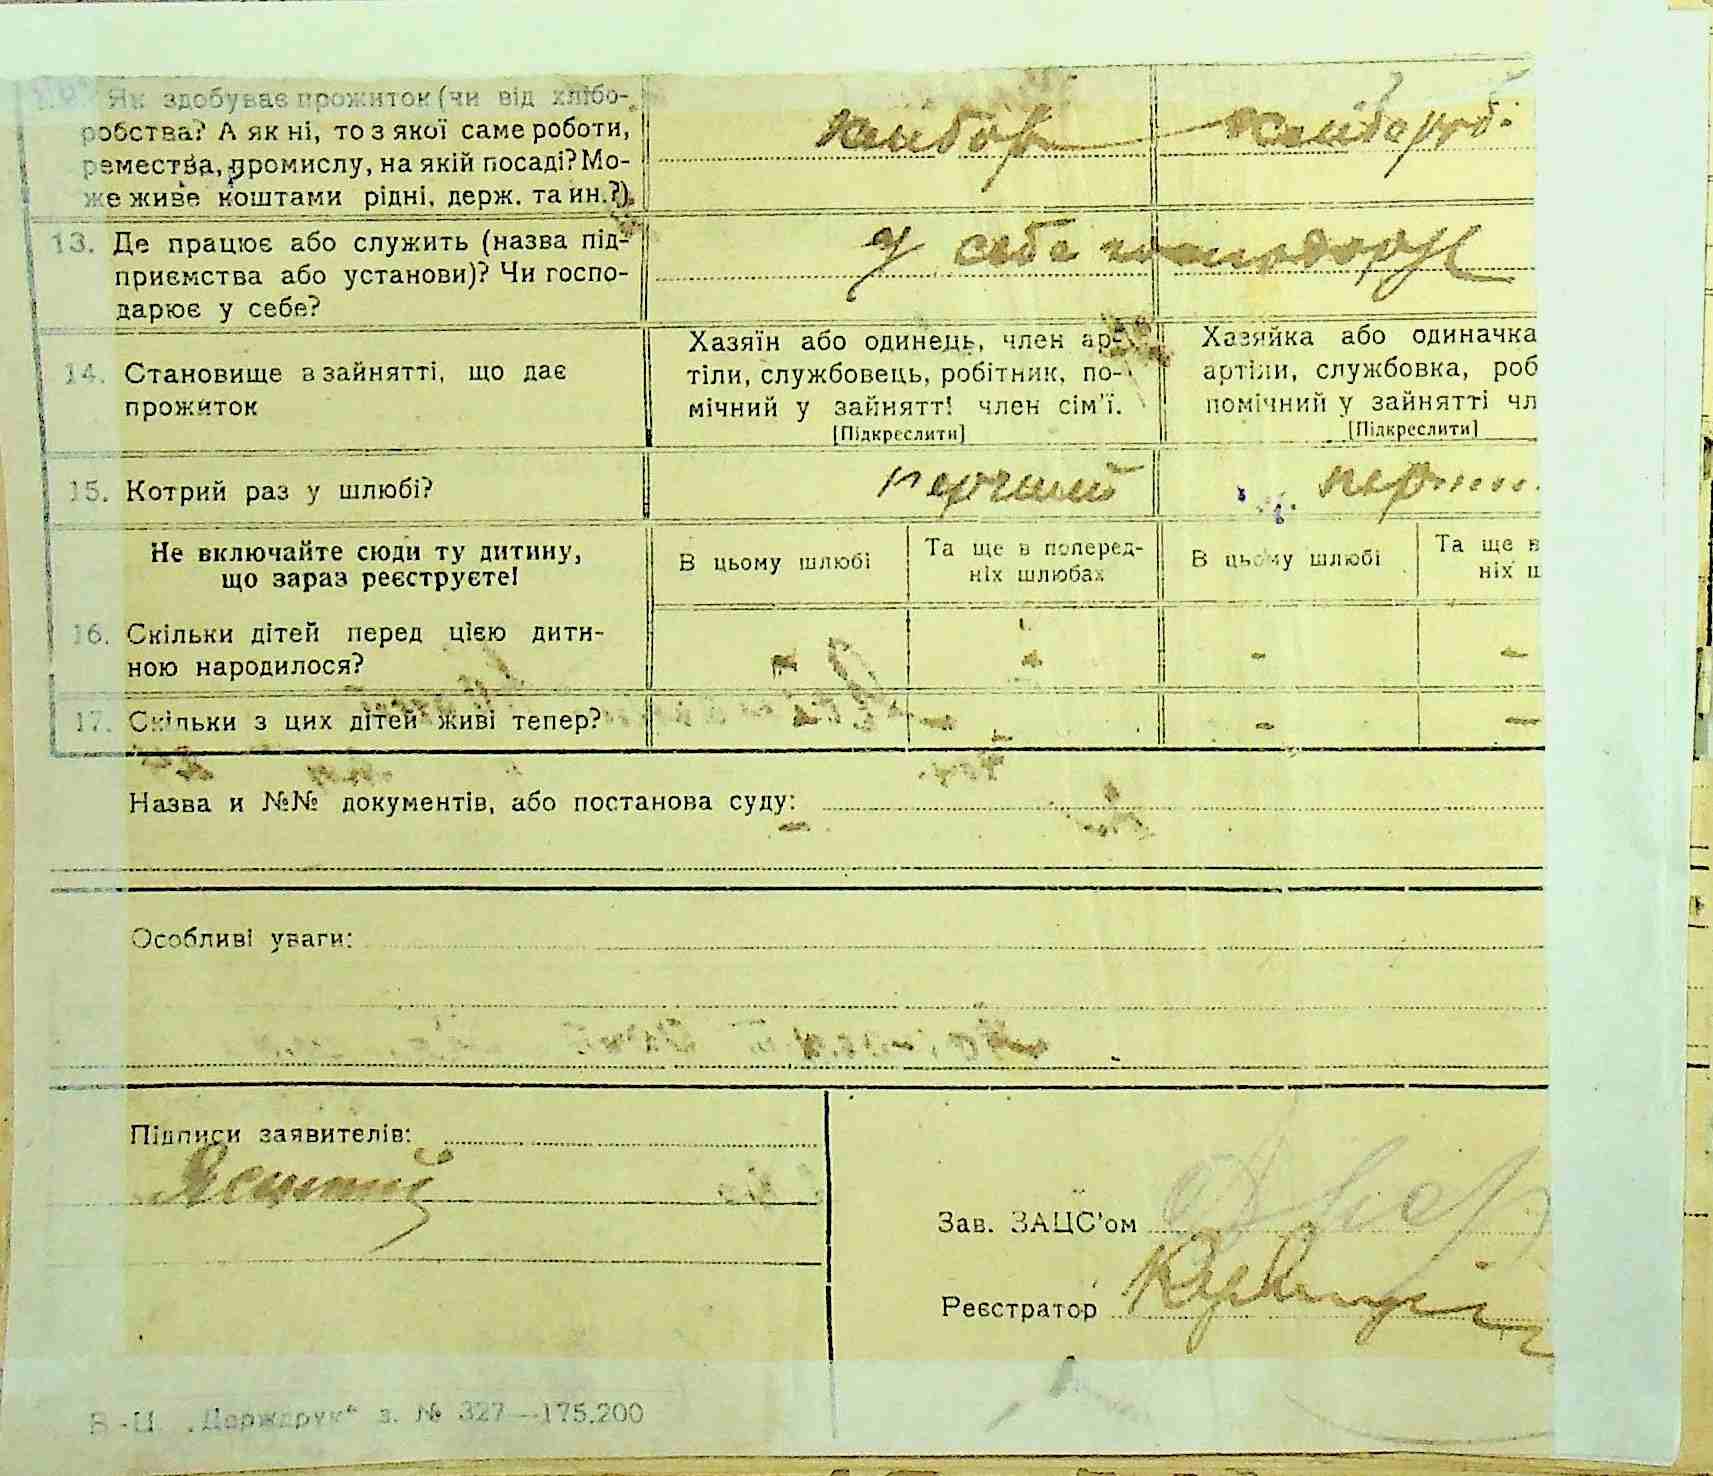 Як здобуває прожиток (чи від хлібо-
робства? А як ні, то з якої саме роботи,
ремества, промислу, на якій посаді? Мо-
же живе коштами рідні, держ. та ин.?)
хлібор хлібороб.
13. Де працює або служить (назва під-
приємства або установи)? Чи госпо-
дарює у себе?
у себе господарує
14. Становище в зайнятті, що дає
прожиток
Хазяїн або одинець, член ар-
тіли, службовець, робітник, по-
мічний у зайнятті член сім'ї.
[Підкреслити]
Хазяйка або одиначка
артіли, службовка, роб
помічний у зайнятті чл
[Підкреслити]
15. Котрий раз у шлюбі?
перший
Не включайте сюди ту дитину,
що зараз реєструєте!
В цьому шлюбі
Та ще в поперед-
ніх шлюбах
В цьому шлюбі
Та ще в
ніх ш
16. Скільки дітей перед цією дити-
ною народилося?
- - - -
17. Скільки з цих дітей живі тепер?
- - - -
Назва и №№ документів, або постанова суду:
-
Особливі уваги:
Підписи заявителів:
Зав. ЗАЦС'ом
Реєстратор
В-Ц. „Держдрук" з. № 327—175.200